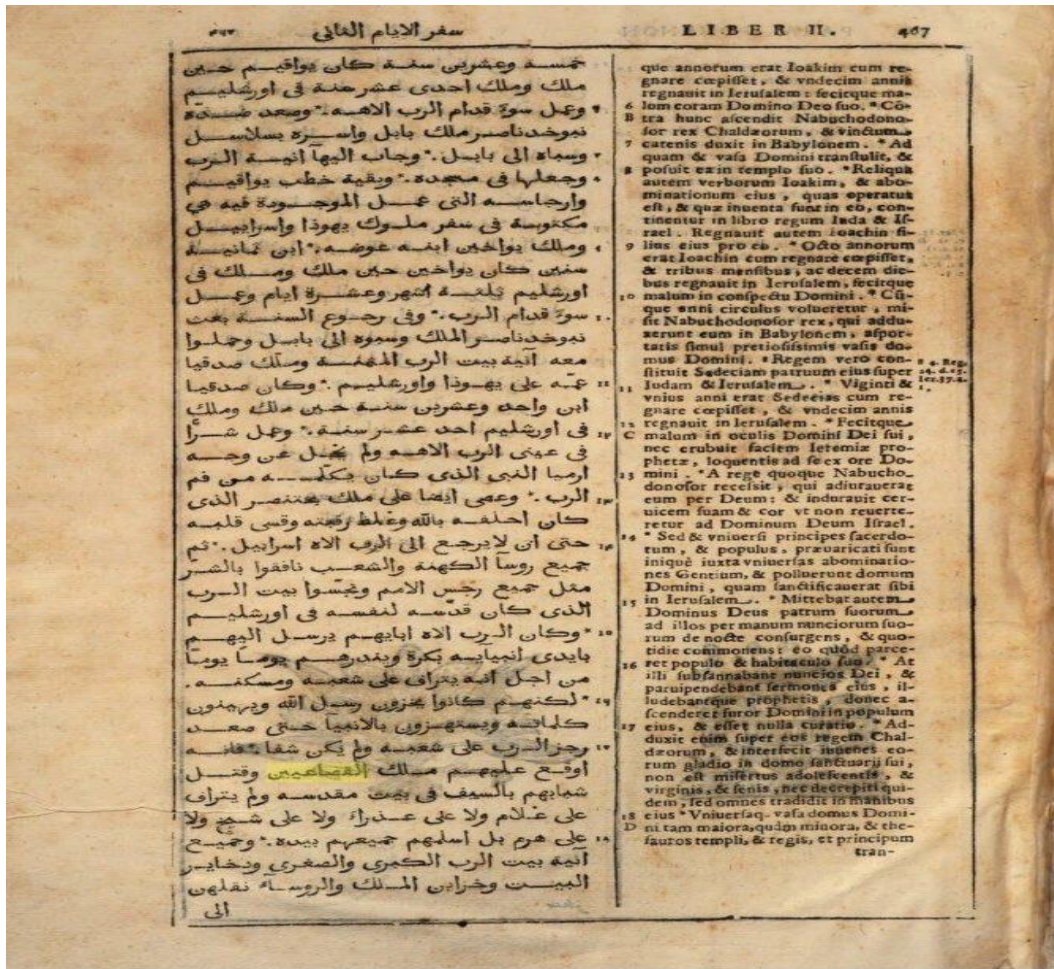 سفر الايام الثاني
LIBER II. 467
خمسة وعشرين سنة كان يواقيم حين
ملك وملك احدى عشر سنة في اورشليم
وعمل سوة قدام الرب الاهه * وصعد ضده
نبوخدناصر ملك بابل واسره بسلاسل
وسباه الى بابل * وجاب اليها انية الرب
وجعلها في مسجده * وبقية خطب يواقيم
وارجاسه التي عمل الموجودة فيه هي
مكتوبة في سفر ملوك يهوذا واسراييل
وملك يواخين ابنه عوضه * ابن ثمانية
سنين كان يواخين حين ملك وملك في
اورشليم ثلثة اشهر وعشرة ايام وعمل
سوة قدام الرب * وفي رجوع السنة بعث
نبوخدناصر الملك وسبوه الى بابل وحملوا
معه آنية بيت الرب المثمنة وملك صدقيا
عمه على يهوذا واورشليم * وكان صدقيا
ابن واحد وعشرين سنة حين ملك وملك
في اورشليم احد عشر سنة * وعمل شرا
في عيني الرب الاهه ولم يخجل عن وجه
ارميا النبي الذي كان يكلمه من فم
الرب * وعصى ايضا على ملك بختنصر الذي
كان احلفه بالله وغلظ رقبته وقسى قلبه
حتى ان لا يرجع الى الرب الاه اسراييل * ثم
جميع روسا الكهنة والشعب نافقوا بالشر
مثل جميع رجس الامم ونجسوا بيت الرب
الذى كان قدسه لنفسه فى اورشليم
* وكان الرب الاه ابايهم يرسل اليهم
بايدى انبيايه بكرة وينذرهم يوما يوما
من اجل انه يتراف على شعبه ومسكنه
* لكنهم كانوا يخزون رسل الله ويرمنون
كلماته ويستهزون بالانبيا حتى صعد
رجز الرب على شعبه ولم يكن شفا * فانه
اوقع عليهم ملك القضاعيين وقتل
شبابهم بالسيف فى بيت مقدسه ولم يتراف
على غلام ولا على عذراء ولا على شيخ ولا
على هرم بل اسلمهم جميعهم بيده * وجميع
آنية بيت الرب الكبرى والصغرى وذخاير
البيت وخزاين الملك والروساء نقلهن
الى
que annorum erat Ioakim cum re-
gnare cœpisset, & vndecim annis
regnauit in Ierusalem: fecitque ma-
6 lum coram Domino Deo suo. * Cō-
B tra hunc ascendit Nabuchodono-
sor rex Chaldæorum, & vinctum
7 catenis duxit in Babylonem. * Ad
quam & vasa Domini transtulit, &
8 posuit ea in templo suo. * Reliqua
autem verborum Ioakim, & abo-
minationum eius, quas operatus
est, & quæ inuenta sunt in eo, con-
tinentur in libro regum Iuda & Is-
rael. Regnauit autem Ioachin fi-
9 lius eius pro eo. * Octo annorum
erat Ioachin cum regnare cœpisset,
& tribus mensibus, ac decem die-
bus regnauit in Ierusalem, fecitque
10 malum in conspectu Domini. * Cū-
que anni circulus volueretur, mi-
sit Nabuchodonosor rex, qui addu-
xerunt eum in Babylonem, aspor-
tatis simul pretiosissimis vasis do-
mus Domini. * Regem vero con-
stituit Sedeciam patruum eius super
11 Iudam & Ierusalem. * Viginti &
vnius anni erat Sedecias cum re-
gnare cœpisset, & vndecim annis
12 regnauit in Ierusalem. * Fecitque
C malum in oculis Domini Dei sui,
nec erubuit faciem Ieremiæ pro-
phetæ, loquentis ad se ex ore Do-
13 mini. * A rege quoque Nabucho-
donosor recessit, qui adiurauerat
eum per Deum: & indurauit cer-
uicem suam & cor vt non reuerte-
retur ad Dominum Deum Israel.
14 * Sed & vniuersi principes sacerdo-
tum, & populus, præuaricati sunt
iniquè iuxta vniuersas abominatio-
nes Gentium, & polluerunt domum
Domini, quam sanctificauerat sibi
15 in Ierusalem. * Mittebat autem
Dominus Deus patrum suorum
ad illos per manum nunciorum suo-
rum de nocte consurgens, & quo-
tidie commonens: eo quòd parce-
16 ret populo & habitaculo suo. * At
illi subsannabant nuncios Dei, &
paruipendebant sermones eius, il-
ludebantque prophetis, donec a-
scenderet furor Domini in populum
17 eius, & esset nulla curatio. * Ad-
duxit enim super eos regem Chal-
dæorum, & interfecit iuuenes eo-
rum gladio in domo sanctuarij sui,
non est misertus adolescentis, &
virginis, & senis, nec decrepiti qui-
dem, sed omnes tradidit in manibus
18 eius * Vniuersaq. vasa domus Domi-
D ni tam maiora, quàm minora, & the-
sauros templi, & regis, et principum
tran-
4. Reg.
24. d. 17.
Ier. 37. a.
1.